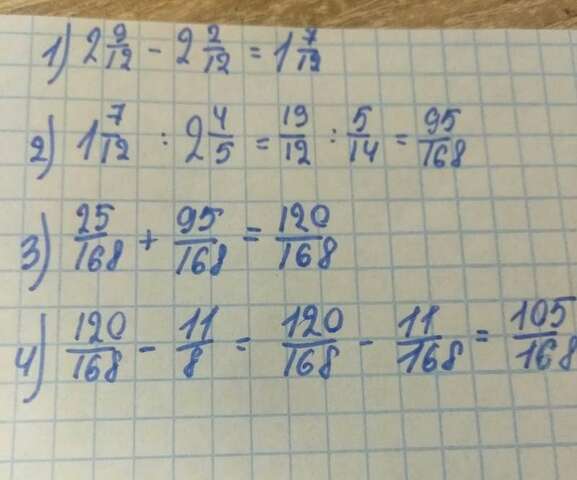 1) 2 9/12 - 2 2/12 = 1 7/12
2) 1 7/12 : 2 4/5 = 19/12 : 5/14 = 95/168
3) 25/168 + 95/168 = 120/168
4) 120/168 - 11/8 = 120/168 - 11/168 = 105/168